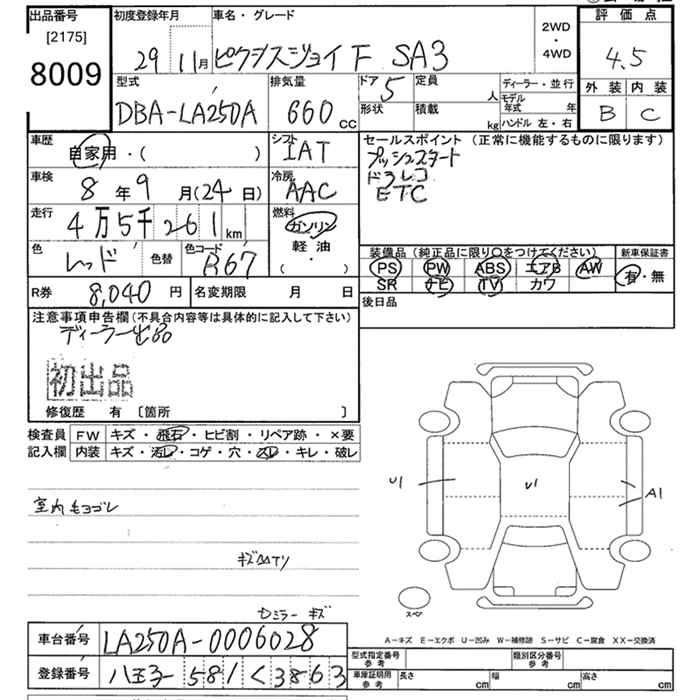 出品番号
[2175]
8009
初度登録年月
29年 11月
車名・グレード
ピクシスジョイF SA3
2WD
・
4WD
評価点
4.5
外装 内装
B C
型式
DBA-LA250A
排気量
660 cc
ドア 5
形状
定員 人
積載 kg
ディーラー・並行
モデル年式 年
ハンドル 左・右
車歴
自家用・( )
シフト
IAT
セールスポイント (正常に機能するものに限ります)
プッシュスタート
ドラレコ
ETC
車検
8年9月(24日)
冷房
AAC
走行
4万5千261km
燃料
ガソリン
軽油
( ・ )
色
レッド
色替
色コード
R67
装備品 (純正品に限り○をつけてください)
PS PW ABS エアB AW
SR ナビ TV カワ
新車保証書
有・無
R券 8,040円
名変期限 月 日
後日品
注意事項申告欄(不具合内容等は具体的に記入して下さい)
ディーラー出品
初出品
修復歴 有 [箇所 ]
検査員
記入欄
FW キズ・飛石・ヒビ割・リペア跡・×要
内装 キズ・汚レ・コゲ・穴・スレ・キレ・破レ
室内ヨゴレ
Dミラーキズ
U1
U1
A1
スペア
A-キズ E-エクボ U-凹み W-補修跡 S-サビ C-腐食 XX-交換済
車台番号 LA250A-0006028
登録番号 八王子 581 く 3863
型式指定番号
参考
類別区分番号
参考
車庫証明用
参考
長さ cm 幅 cm 高さ cm